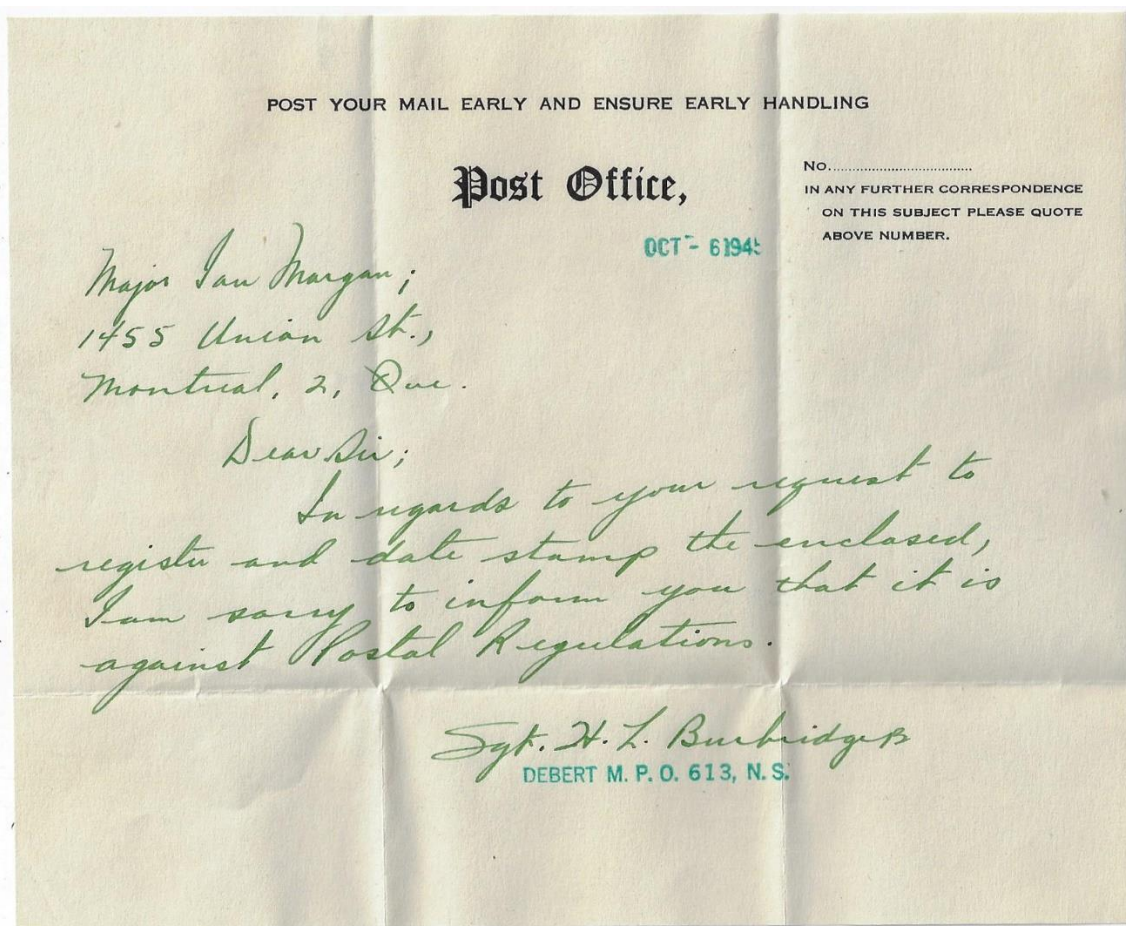 POST YOUR MAIL EARLY AND ENSURE EARLY HANDLING
Post Office,
No.
IN ANY FURTHER CORRESPONDENCE
ON THIS SUBJECT PLEASE QUOTE
ABOVE NUMBER.
OCT - 6 1945
Major Ian Morgan;
1455 Union St.,
Montreal, 2, Que.
Dear Sir;
In regards to your request to
register and date stamp the enclosed,
I am sorry to inform you that it is
against Postal Regulations.
Sgt. H. L. Burbridge
DEBERT M. P. O. 613, N. S.